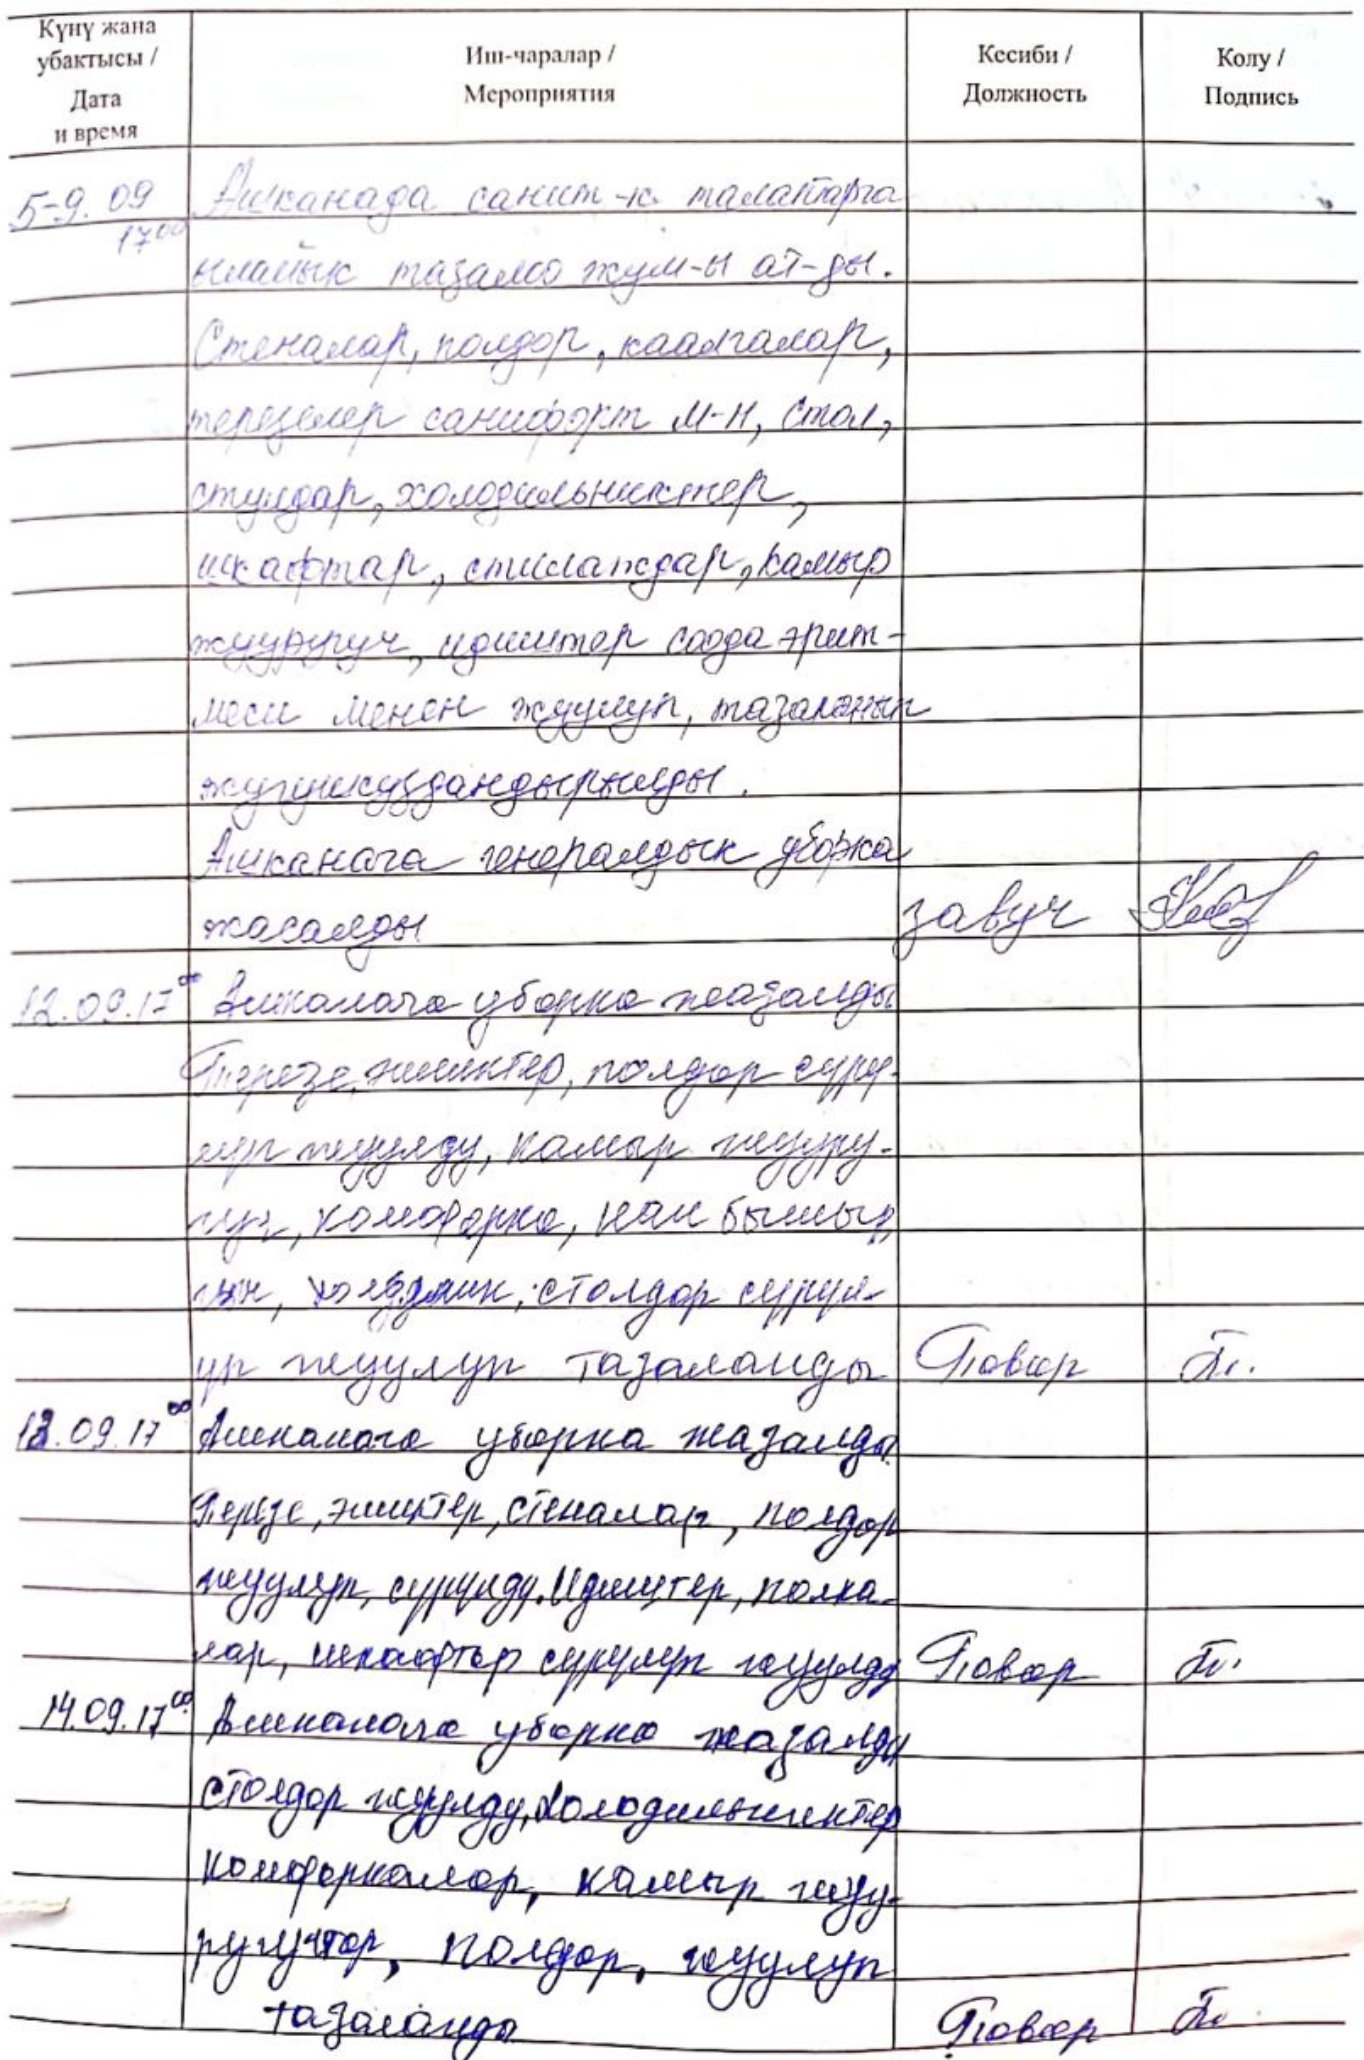 Күнү жана
убактысы /
Дата
и время
Иш-чаралар /
Мероприятия
Кесиби /
Должность
Колу /
Подпись
5-9.09 Ашканада санит-к талаптарга
17 00 ылайык тазалоо жум-ы ат-ды.
Стеналар, полдор, каалгалар,
терезелер санифорт м-н, стол,
стулдар, холодильниктер,
шкафтар, стилаждар, камыр
жууругуч, идиштер сода эрит-
меси менен жуулуп, тазаланып
жугушсуздандырылды.
Ашканага генералдык уборка
жасалды завуч
12.09.17 00 Ашканага уборка жазалды
Терезе, эшиктер, полдор сүрү-
лүп жуулду, камыр жууру-
гуч, комфорка, нан бышыр
гыч, столдор сүрүл-
үп жуулуп тазаланды Повар Бт.
13.09.17 00 Ашканага уборка жазалды.
Терезе, эшиктер, стеналар, полдор
жуулуп, сүрүлдү. Идиштер, полка-
лар, шкафтар сүрүлүп жуулду Повар Бт.
14.09.17 00 Ашканага уборка жазалды
столдор жуулду, холодильниктер
комфоркалар, камыр жуу-
ругучтар, полдор, жуулуп
тазаланды Повар Бт